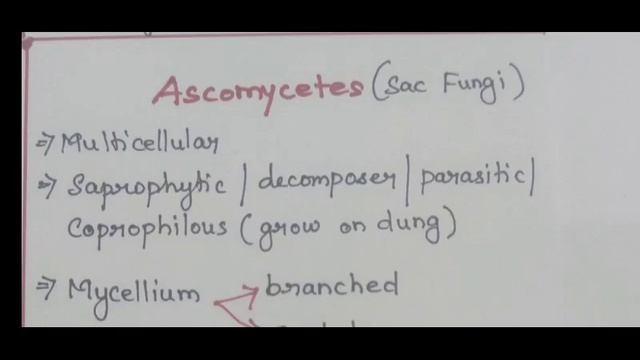 Ascomycetes (Sac Fungi)
⇒ Multicellular
⇒ Saprophytic | decomposer | parasitic |
Coprophilous (grow on dung)
⇒ Mycellium → branched